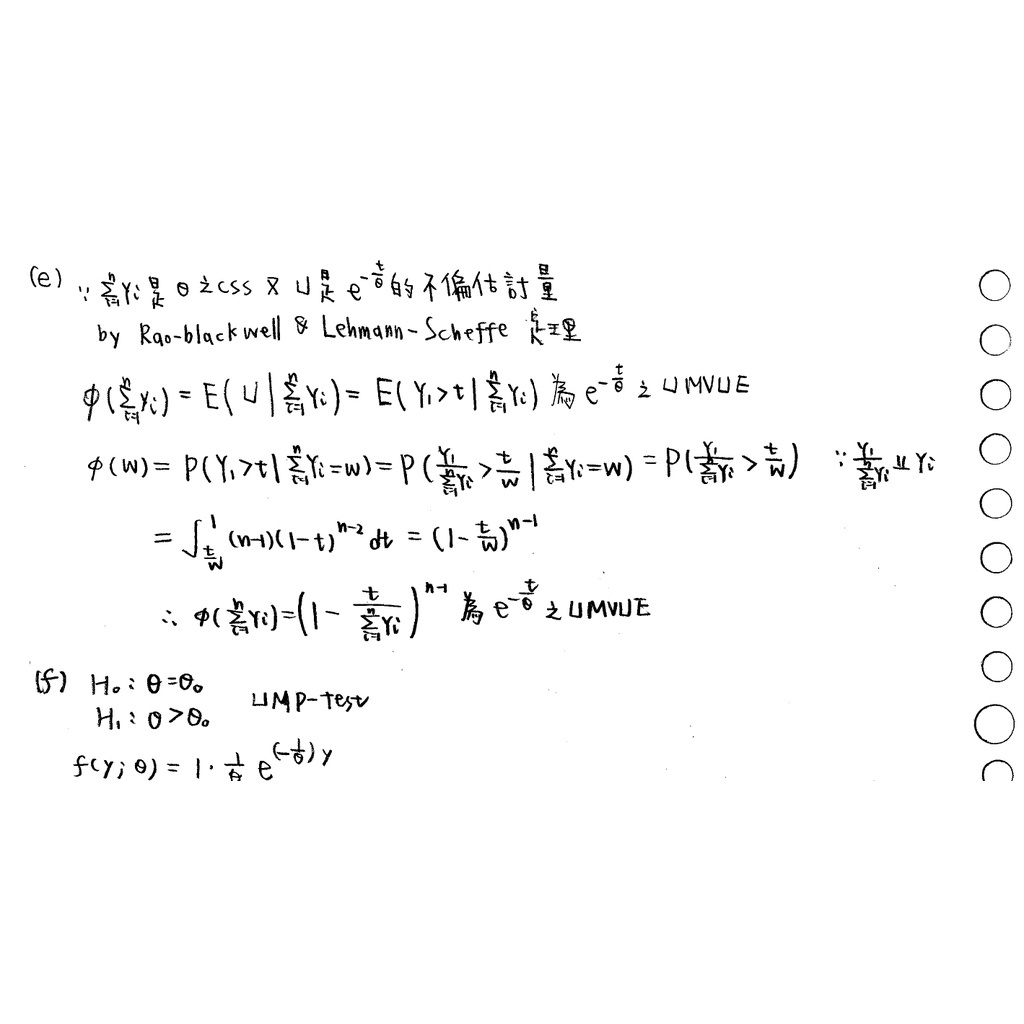 (e) ∵ Σ_{i=1}^n Yi 是 θ 之 CSS 又 U 是 e^{-t/θ} 的不偏估計量
by Rao-blackwell & Lehmann-Scheffe 定理
φ(Σ_{i=1}^n Yi) = E(U | Σ_{i=1}^n Yi) = E(Y₁>t | Σ_{i=1}^n Yi) 為 e^{-t/θ} 之 UMVUE
φ(w) = P(Y₁>t | Σ_{i=1}^n Yi=w) = P(Y₁/Σ_{i=1}^n Yi > t/w | Σ_{i=1}^n Yi=w) = P(Y₁/Σ_{i=1}^n Yi > t/w) ∵ Y₁/Σ_{i=1}^n Yi ⫫ Yi
= ∫_{t/w}^1 (n-1)(1-t)^{n-2} dt = (1-t/w)^{n-1}
∴ φ(Σ_{i=1}^n Yi) = (1 - t/Σ_{i=1}^n Yi)^{n-1} 為 e^{-t/θ} 之 UMVUE
(f) H₀: θ=θ₀
H₁: θ>θ₀ UMP-test
f(y; θ) = 1 · 1/θ e^{(-1/θ)y}